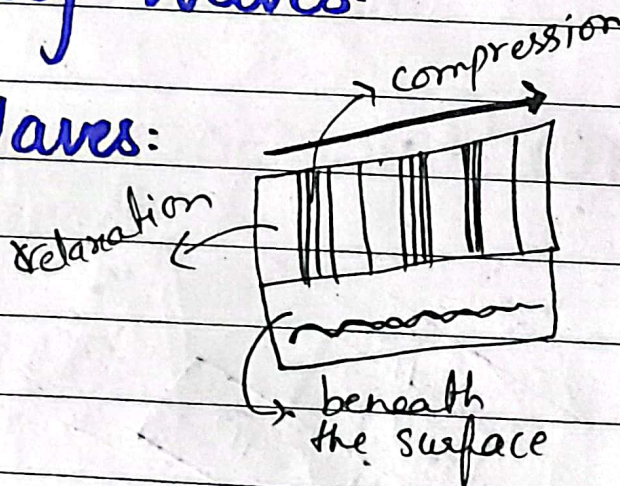 compression
aves:
relaxation
beneath
the surface